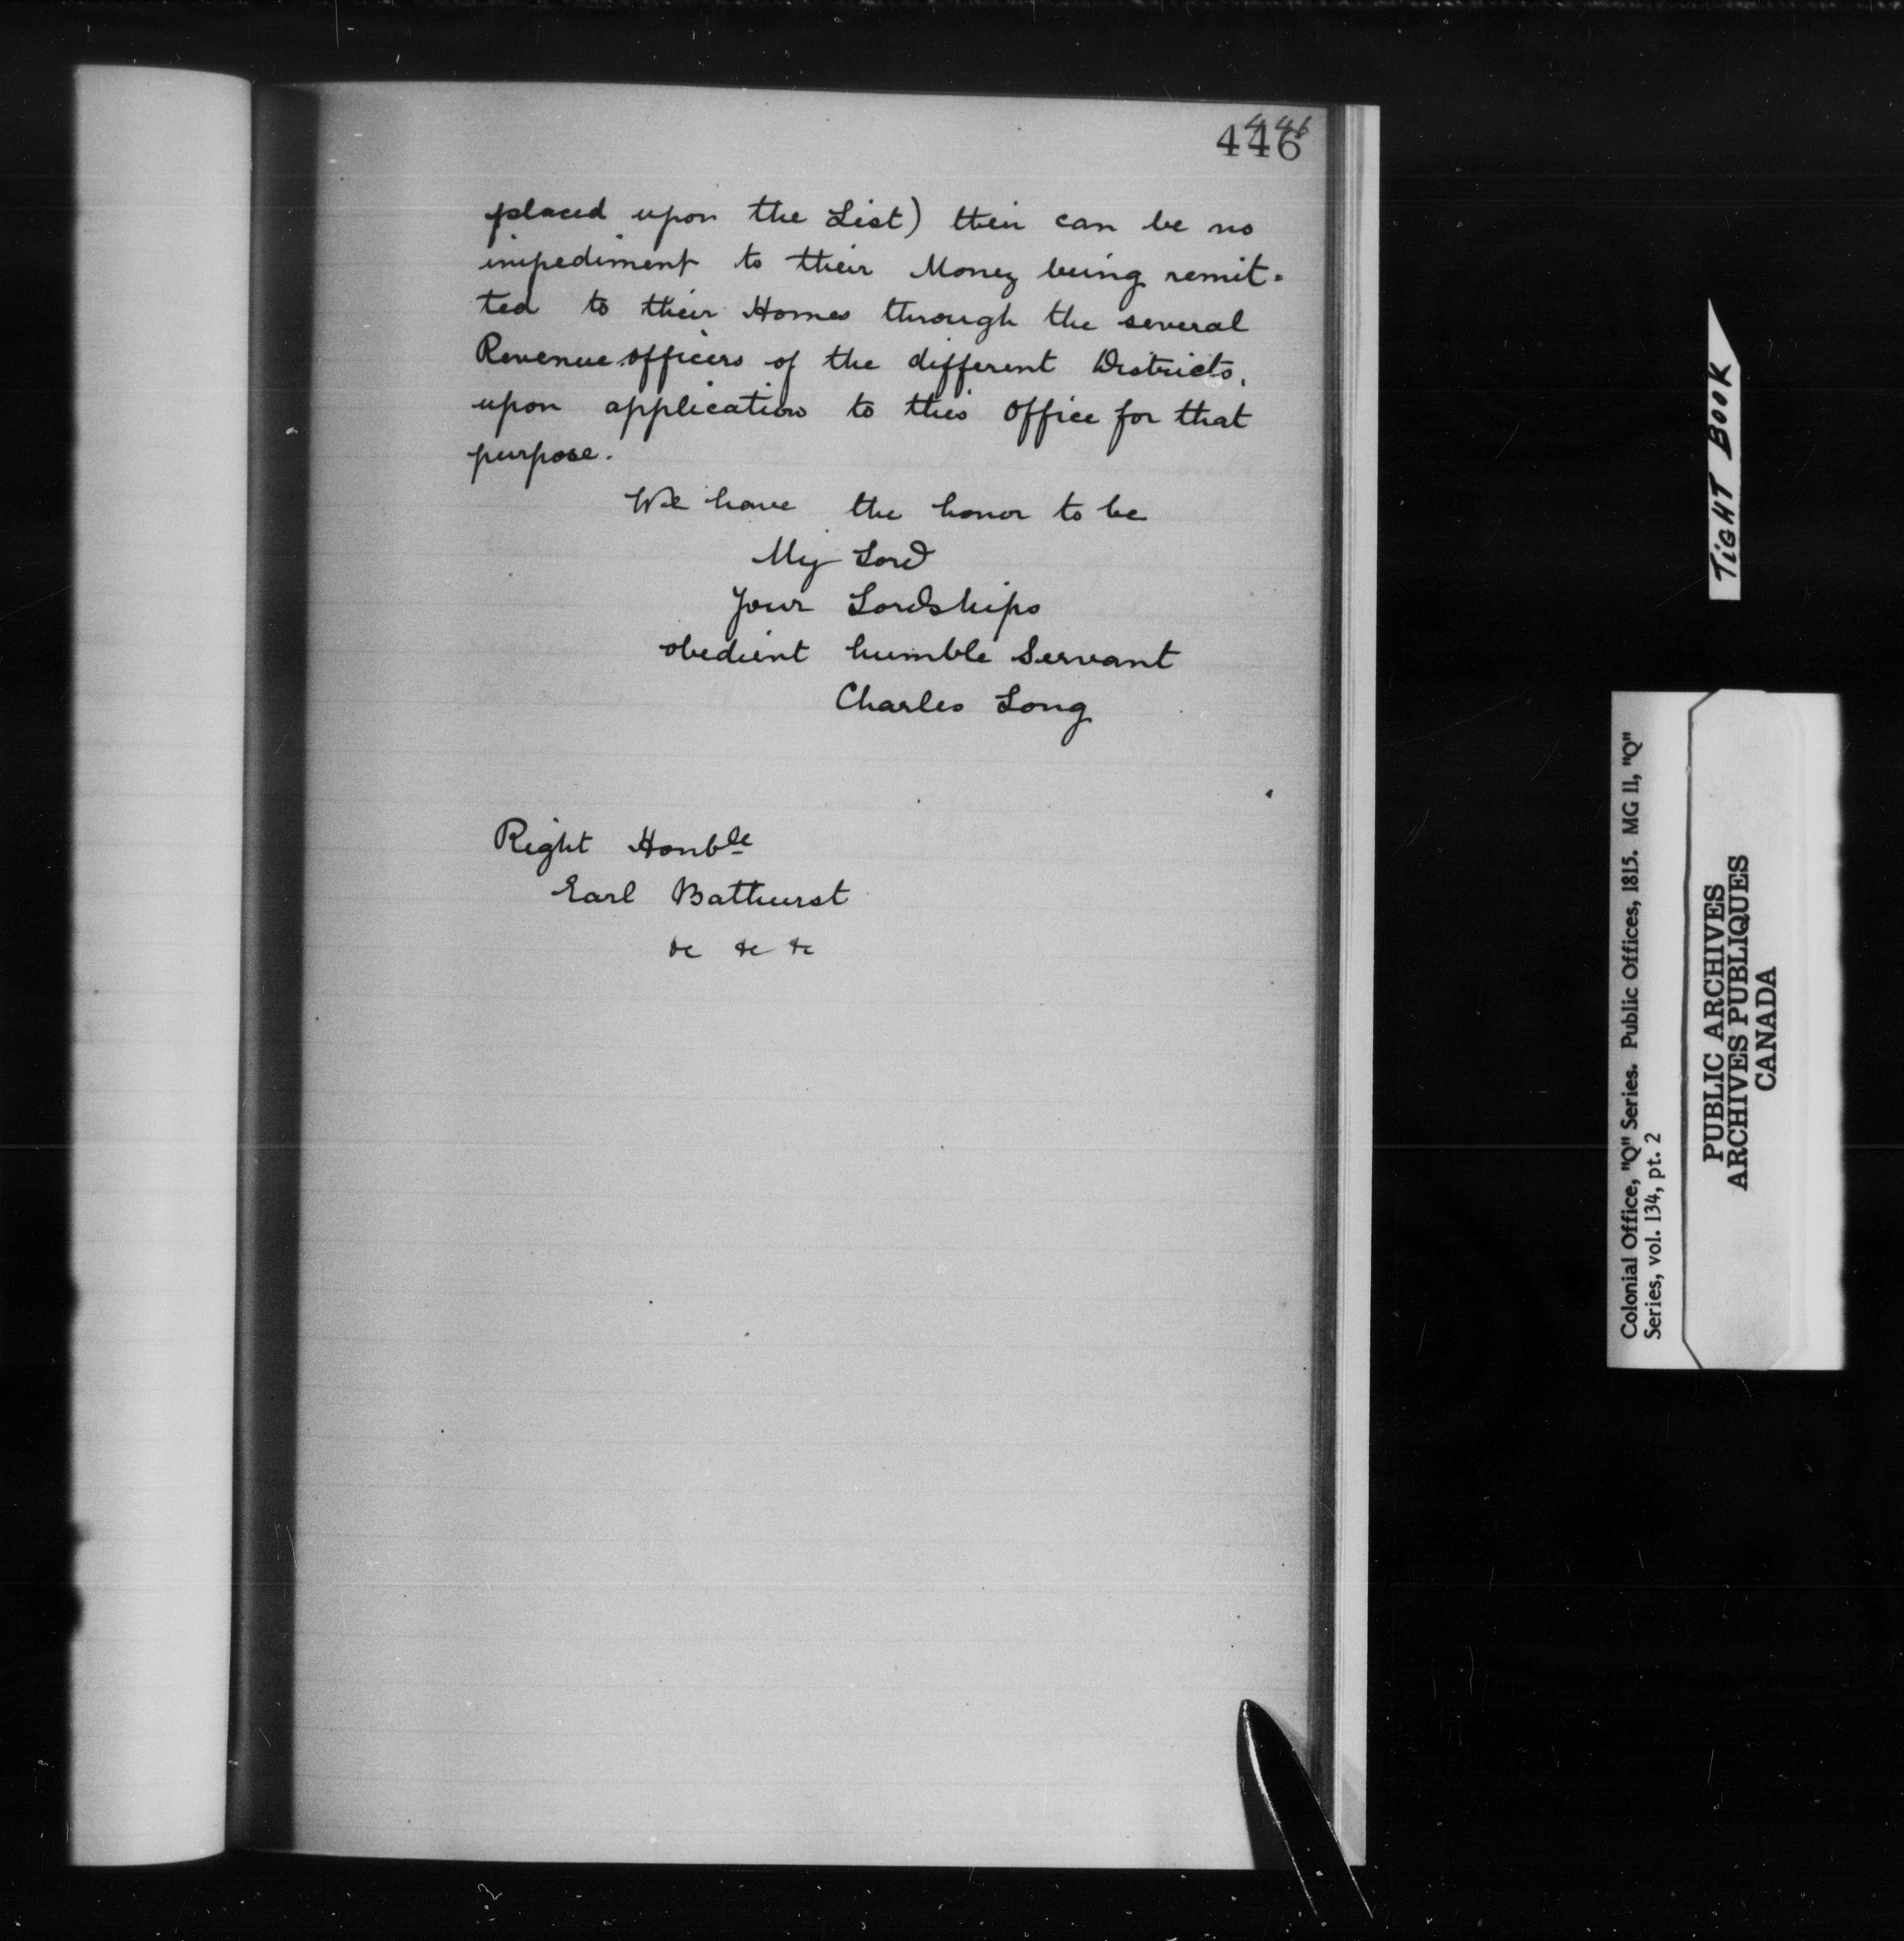 446
446
placed upon the List) their can be no
impediment to their Money being remit=
ted to their Homes through the several
Revenue officers of the different Districts,
upon application to this office for that
purpose.
We have the honor to be
My Lord
Your Lordships
obedient humble Servant
Charles Long
Right Honble
Earl Bathurst
&c &c &c
TIGHT BOOK
Colonial Office, "Q" Series. Public Offices, 1815. MG 11, "Q"
Series, vol. 134, pt. 2
PUBLIC ARCHIVES
ARCHIVES PUBLIQUES
CANADA